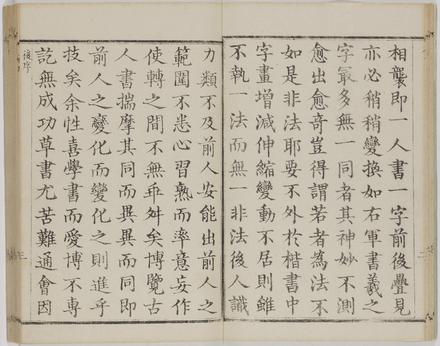 相襲即一人書一字前後疊見
亦必稍稍變換如右軍書羲之
字最多無一同者其神妙不測
愈出愈奇豈得謂若者為法不
如是非法耶要不外於楷書中
字畫增減伸縮變動不居則雖
不執一法而無一非法後人識
力類不及前人安能出前人之
範圍不患心習熟而率意妄作
使轉之間不無乖舛矣博覽古
人書揣摩其同而異異而同即
前人之變化而變化之則進乎
技矣余性喜學書而愛博不專
訖無成功草書尤苦難通會因
後序
二
三